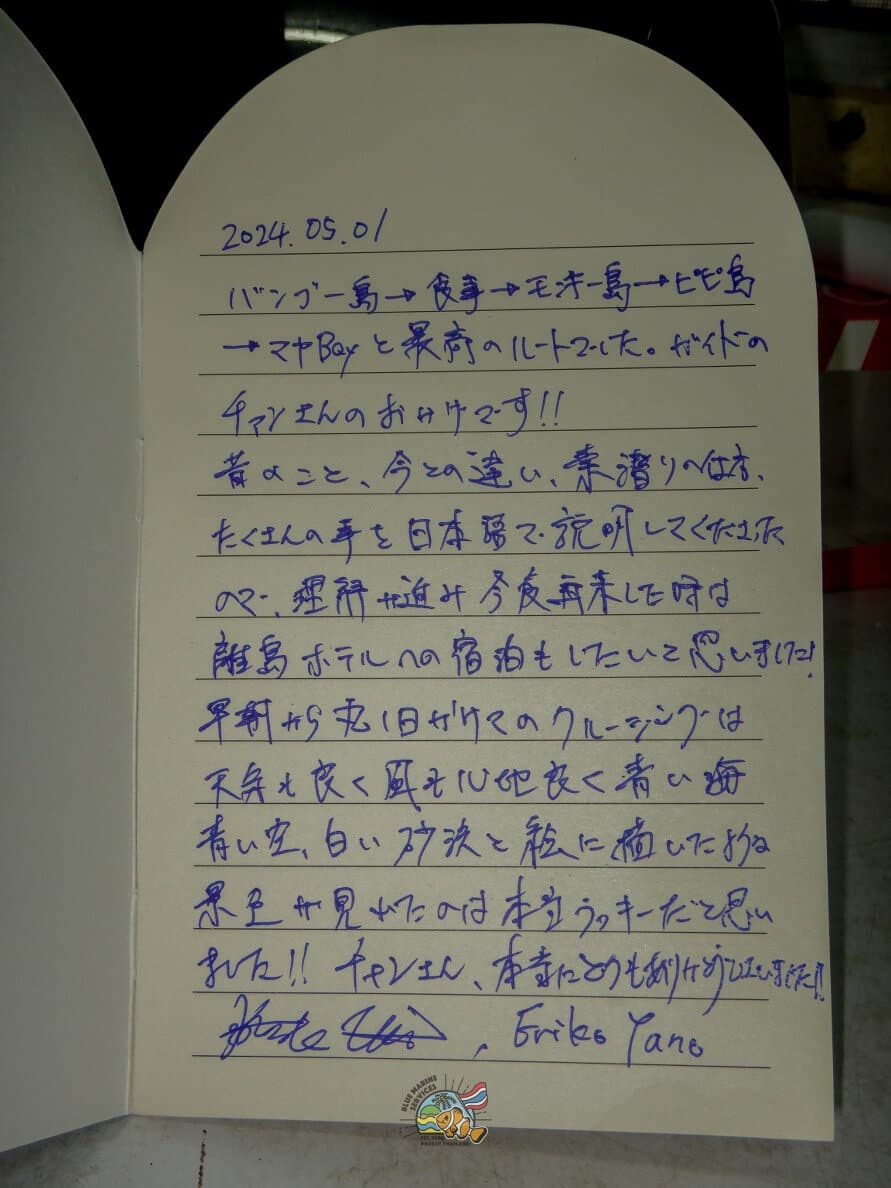 2024.05.01
バンブー島→食事→モンキー島→ピピ島
→マヤBayと最高のルートでした。ガイドの
チャンさんのおかげです!!
昔のこと、今との違い、素潜りへは方、
たくさんの事を日本語で説明してくださった
ので、理解が進み今度再来した時は
離島ホテルへの宿泊もしたいと思いました!
早朝から丸1日がけてのクルージングは
天気も良く風も心地良く青い海
青い空、白い砂浜と絵に描いたような
景色が見れたのは本当ラッキーだと思い
ました!! チャンさん、本当にどうもありがとうございました!!
, Eriko Yano
BLUE MARINE SERVICES
PHUKET THAILAND